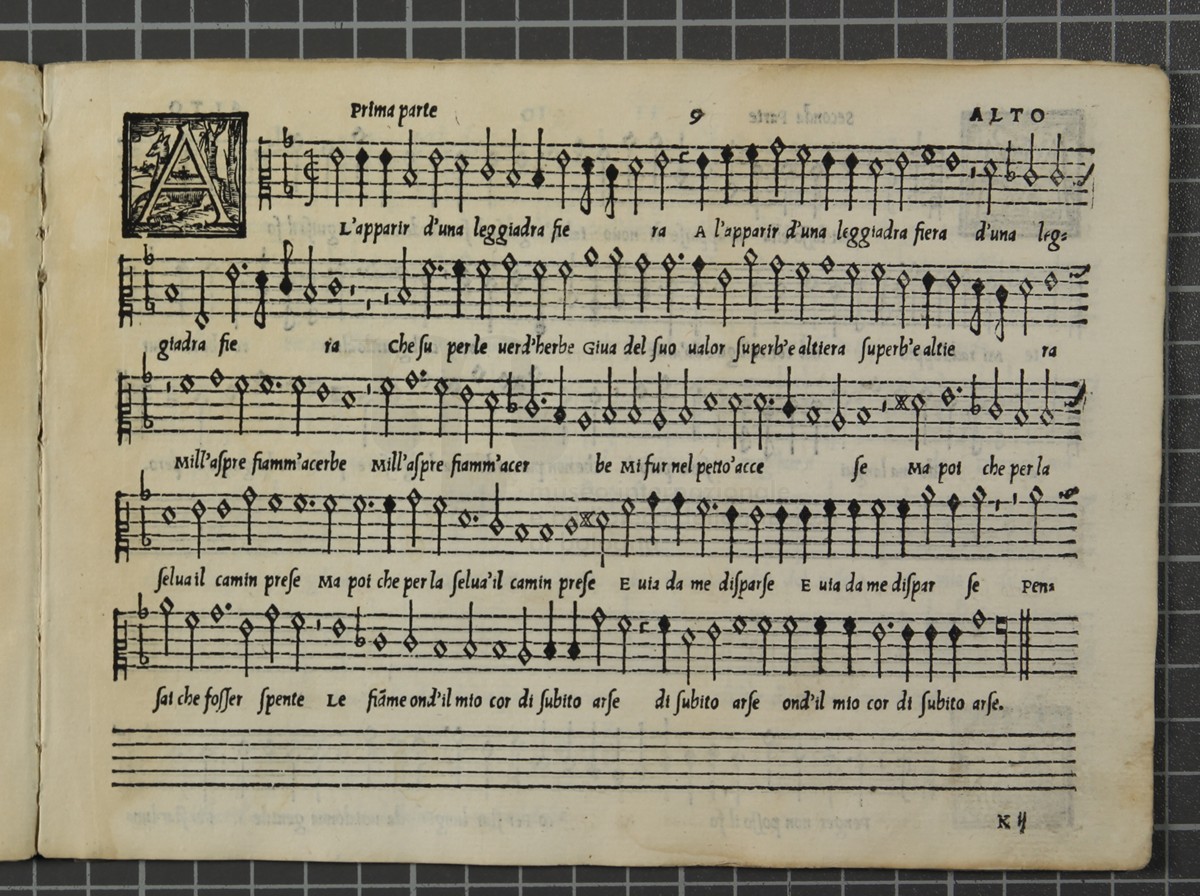 Prima parte 9 ALTO
A L'apparir d'una leggiadra fie ra A l'apparir d'una leggiadra fiera d'una leg=
giadra fie ra Che su per le uerd'herbe Giua del suo ualor superb'e altiera superb'e altie ra
Mill'aspre fiamm'acerbe Mill'aspre fiamm'acer be Mi fur nel petto'acce se Ma poi che per la
selua il camin prese Ma poi che per la selua'il camin prese E uia da me disparse E uia da me dispar se Pen=
sai che fosser spente Le fiāme ond'il mio cor di subito arse di subito arse ond'il mio cor di subito arse.
K ij